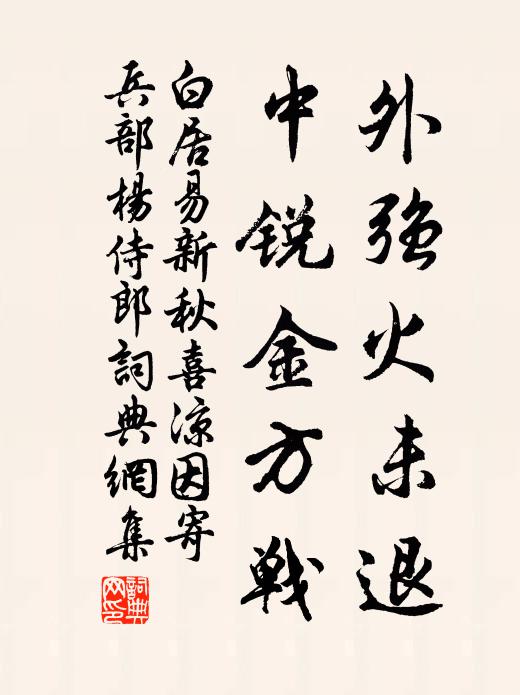 外强火未退
中銳金方戰
白居易新秋喜凉因寄
兵部楊侍郎詞典網集
詞典
网印